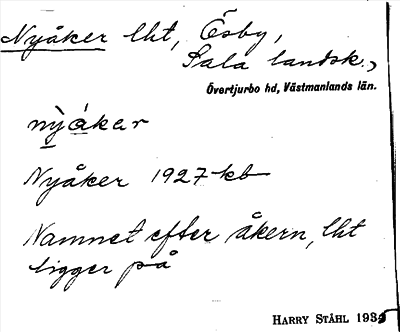 Nyåker lht, Ösby,
Sala landsk.,
Övertjurbo hd, Västmanlands län.
nỳákar
Nyåker 1927 kb
Namnet efter åkern, lht
ligger på
HARRY STÅHL 193